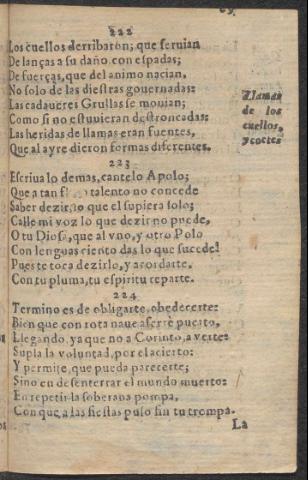 222
Los cuellos derribarõn; que seruian
De lanças a su daño con espadas;
De fuerças, que del animo nacian,
No solo de las diestras gouernadas:
Las cadaueres Grullas se mouian;
Como si no estuuieran destroncadas:
Las heridas de llamas eran fuentes,
Que al ayre dieron formas diferentes.
Llamas
de los
cuellos,
y cortes
223
Escriua lo demas, cantelo Apolo;
Que a tan talento no concede
Saber dezir, lo que el supiera solo;
Calle mi voz lo que dezir no puede,
O tu Diosa, que al vno, y otro Polo
Con lenguas ciento das lo que sucede!
Pues te toca dezirlo, y acordarte.
Con tu pluma, tu espiritu reparte.
224
Termino es de obligarte, obedecerte:
Bien que con rota naue aferrè puerto,
Llegando, ya que no a Corinto, a verte:
Supla la voluntad, por el acierto:
Y permite, que pueda parecerte;
Sino en desenterrar el mundo muerto:
En repetir la soberana pompa,
Con que a las fiestas puso fin tu trompa.
La